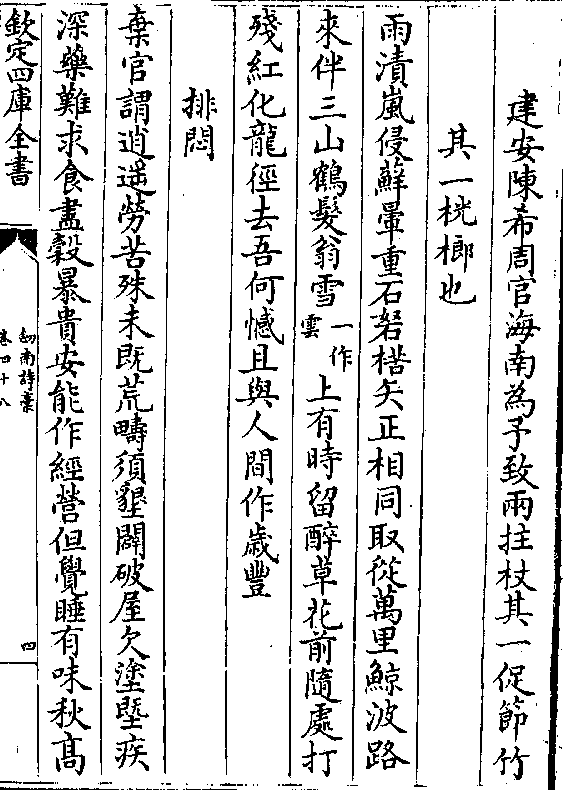 建安陳希周官海南為予致兩拄杖其一促節竹
其一桄榔也
雨漬嵐侵蘚暈重石砮楛矢正相同取從萬里鯨波路
來伴三山鶴髮翁雪一作雲上有時留醉草花前隨處打
殘紅化龍徑去吾何憾且與人間作歲豐
排悶
棄官謂逍遥勞苦殊未既荒疇須墾闢破屋欠塗塈疾
深藥難求食盡穀暴貴安能作經營但覺睡有味秋髙
欽定四庫全書
劍南詩稾
卷四十八
四